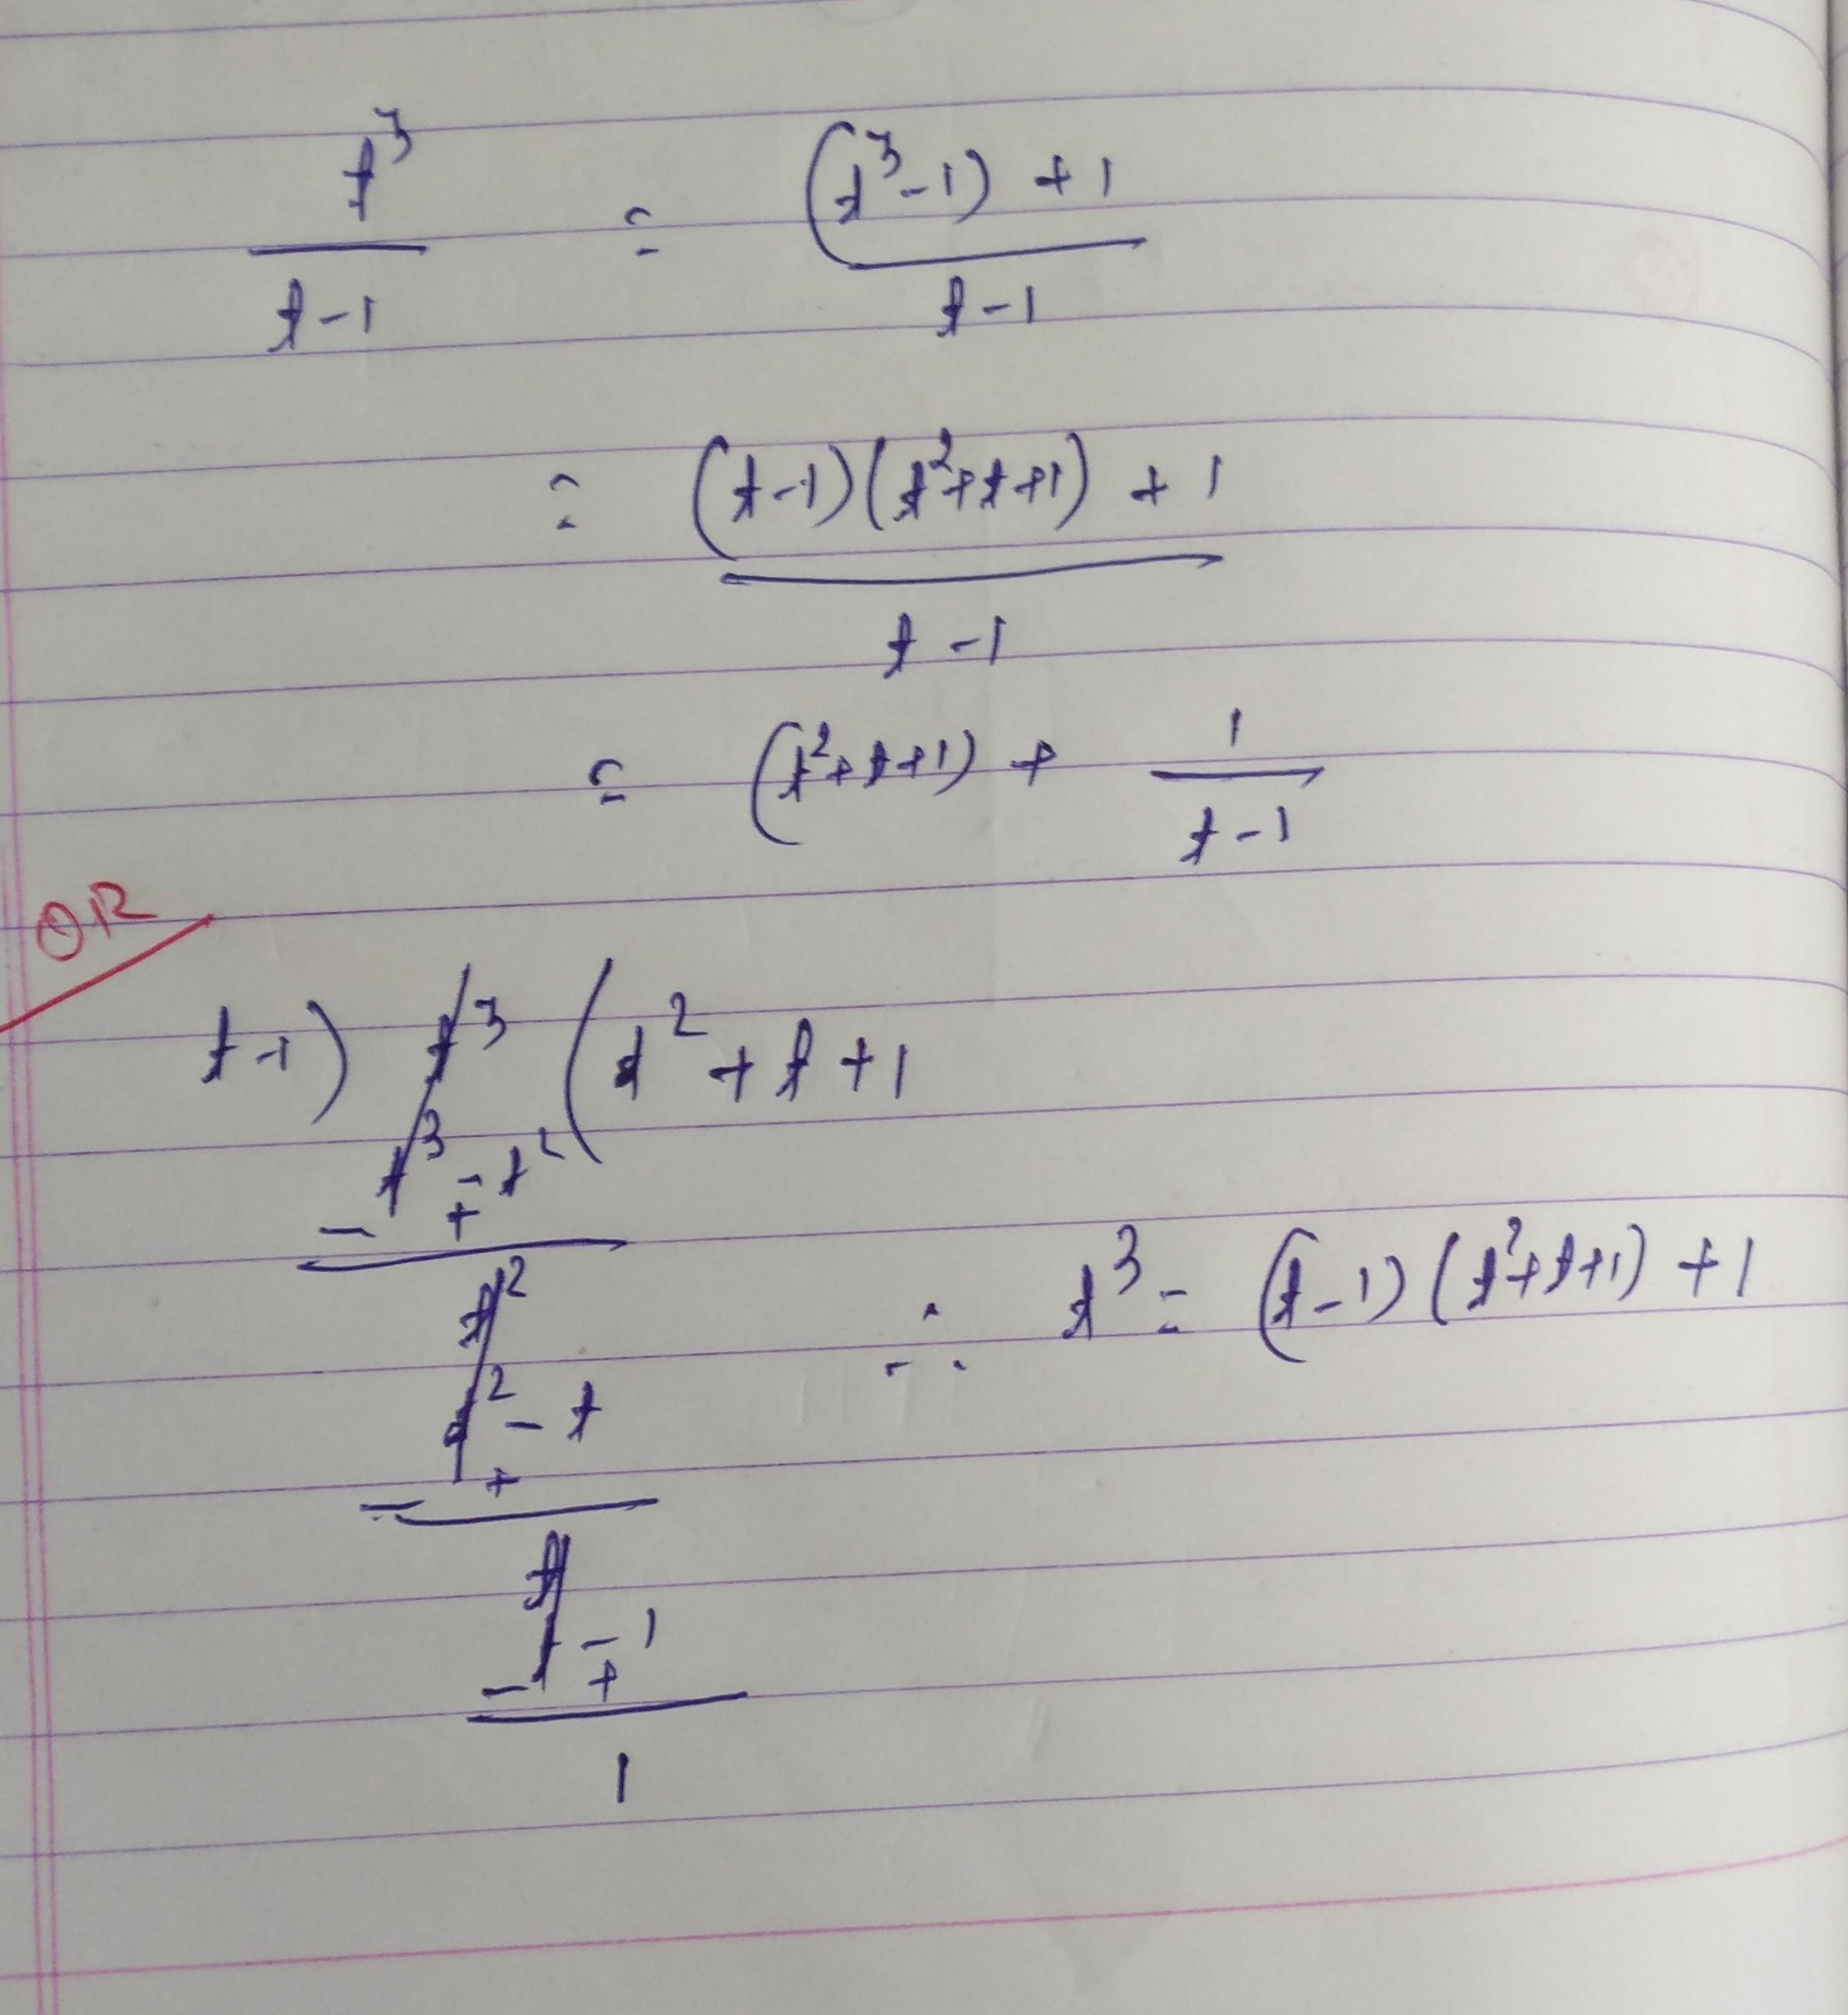 t³/(t-1) = ((t³-1)+1)/(t-1)
= ((t-1)(t²+t+1)+1)/(t-1)
= (t²+t+1) + 1/(t-1)
OR
t-1) t³ (t²+t+1
t³-t²
- +
t²
t²-t
- +
∴ t³ = (t-1)(t²+t+1)+1
t
t-1
- +
1